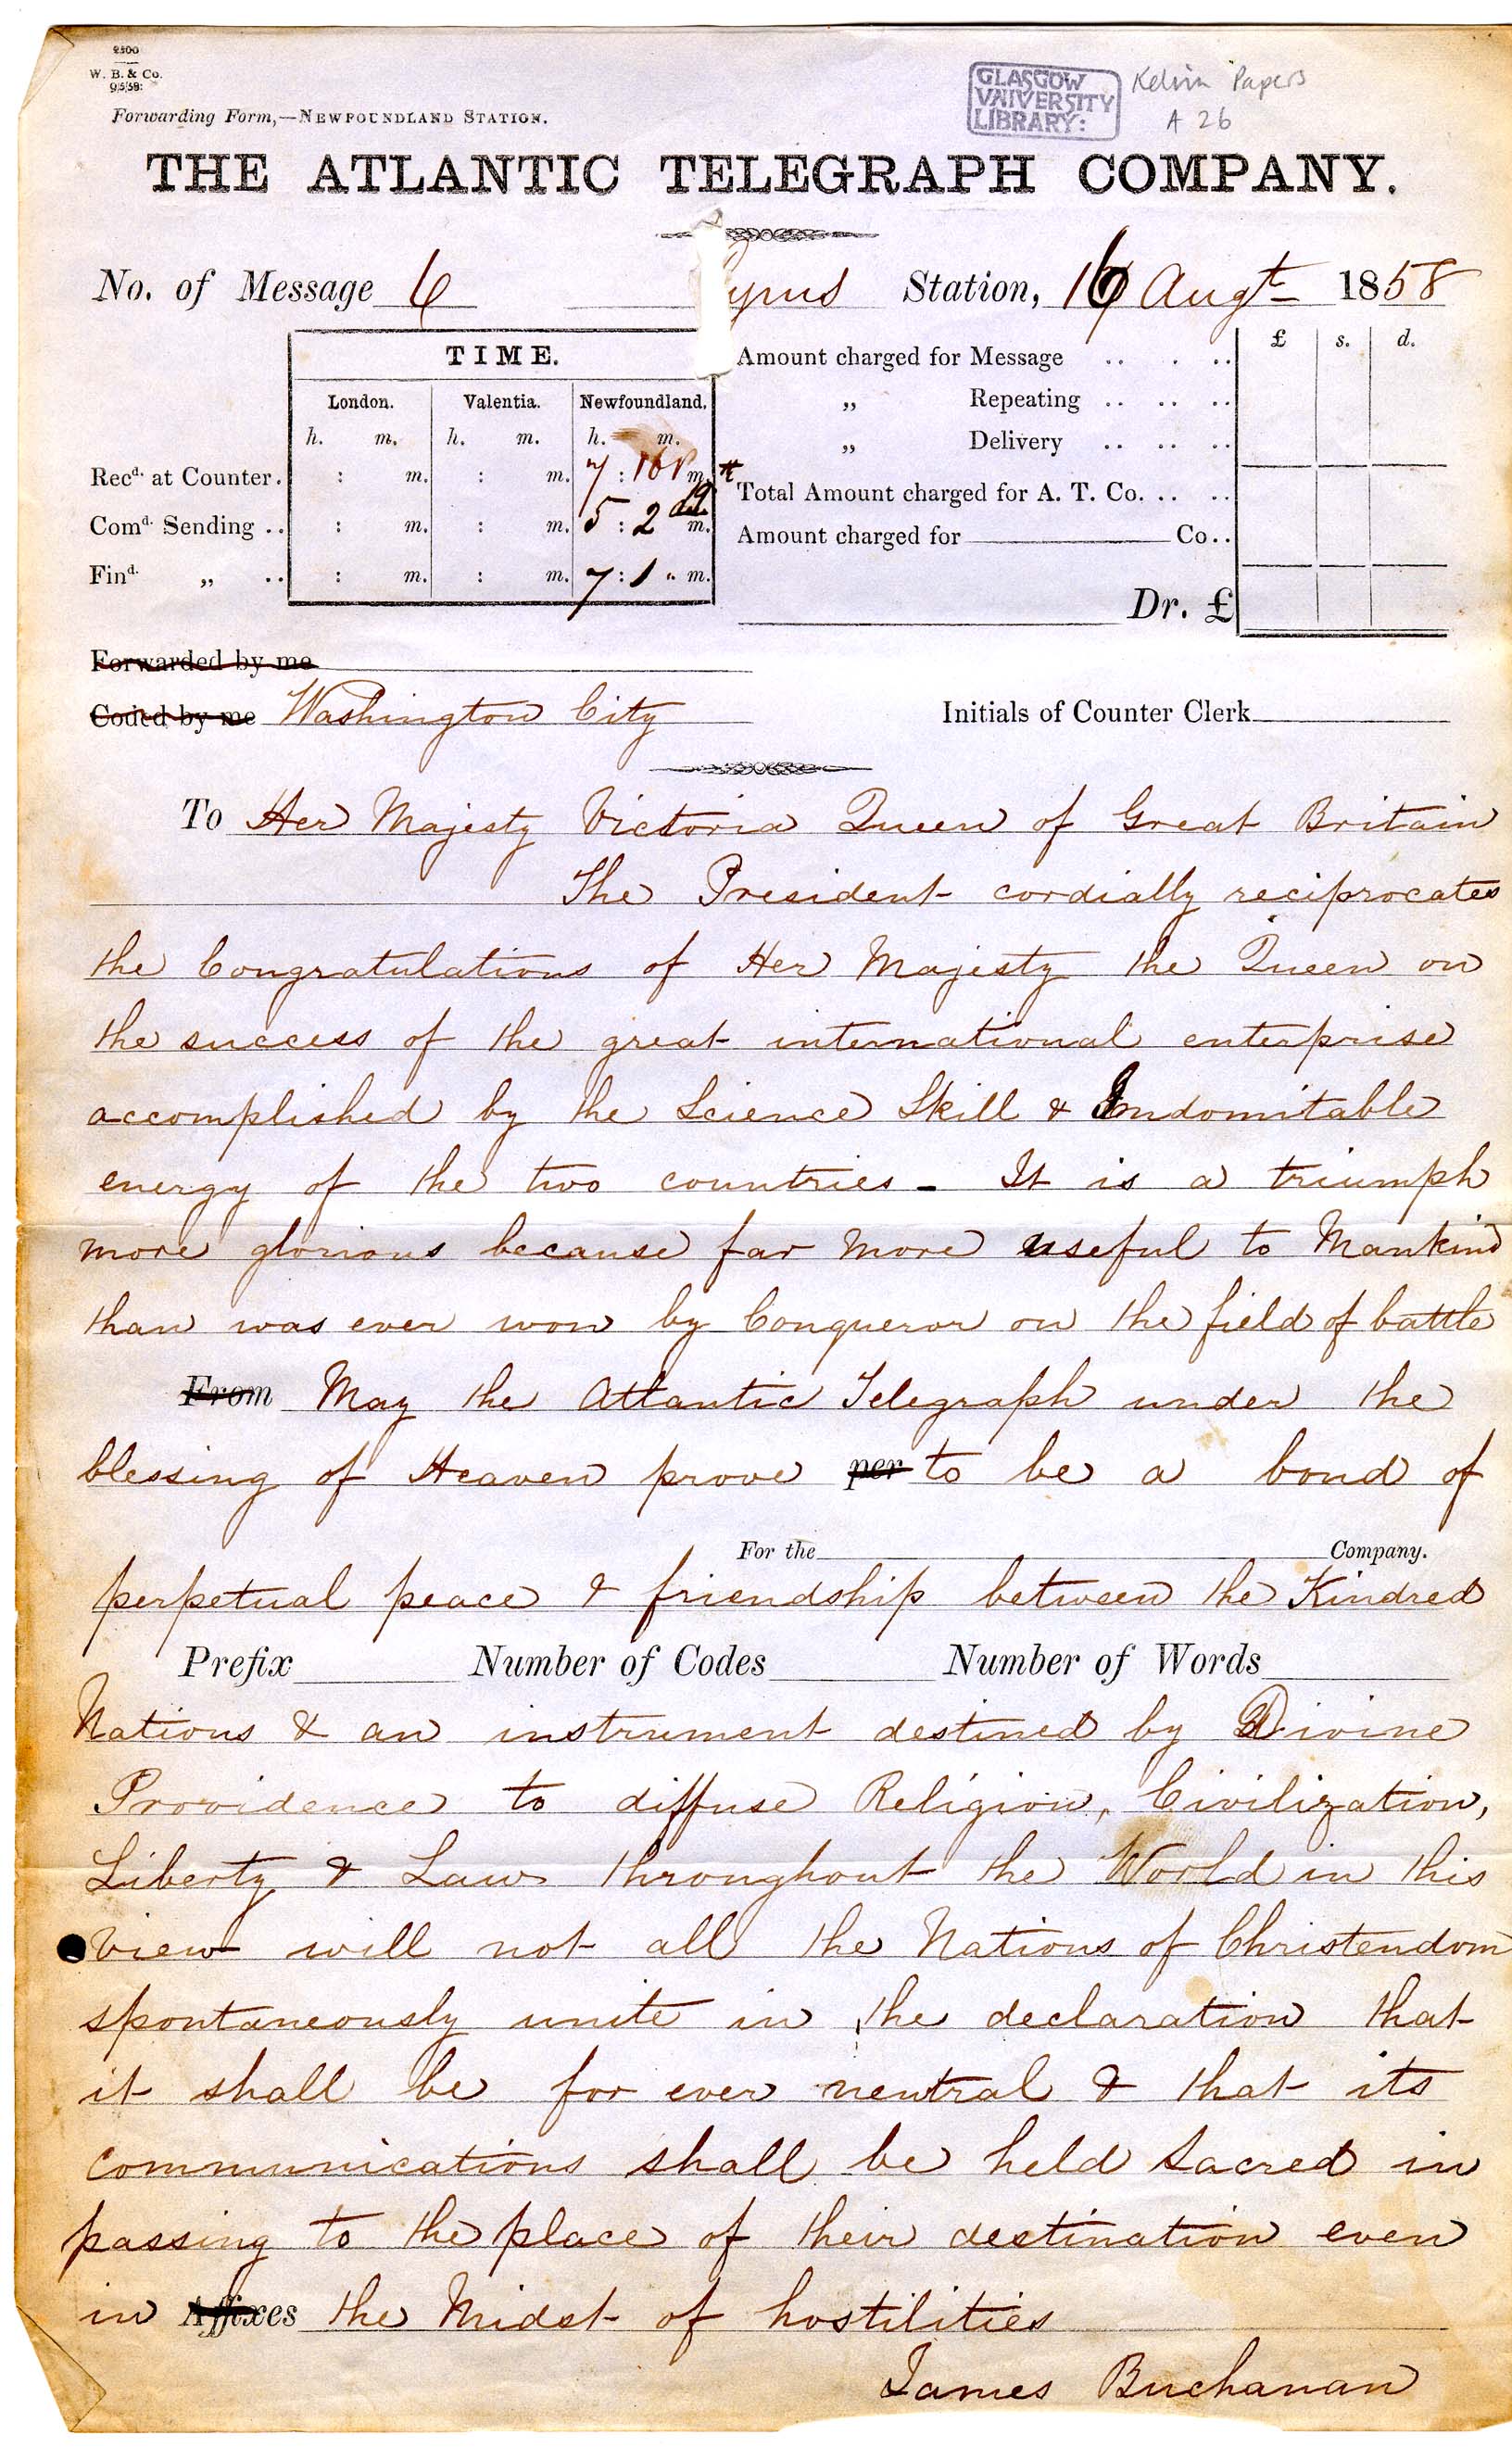 2300
W. B. & Co.
9/5/58:
Forwarding Form,—NEWFOUNDLAND STATION.
GLASGOW
UNIVERSITY
LIBRARY:
Kelvin Papers
A 26
THE ATLANTIC TELEGRAPH COMPANY.
No. of Message 6 Cyrus Station, 16 Augt 1858
TIME.
London. Valentia. Newfoundland.
h. m. h. m. h. m.
Recd. at Counter. : m. : m. 7 : 10 P m.
Comd. Sending .. : m. : m. 5 : 2 m.
Find. „ .. : m. : m. 7 : 1 m.
£ s. d.
Amount charged for Message .. . ..
„ Repeating .. .. ..
„ Delivery .. .. ..
Total Amount charged for A. T. Co. .. ..
Amount charged for Co..
Dr. £
Forwarded by me
Coded by me Washington City
Initials of Counter Clerk
To Her Majesty Victoria Queen of Great Britain
The President cordially reciprocates
the Congratulations of Her Majesty the Queen on
the success of the great international enterprise
accomplished by the Science Skill & Indomitable
energy of the two countries - It is a triumph
more glorious because far more useful to Mankind
than was ever won by Conqueror on the field of battle
From May the Atlantic Telegraph under the
blessing of Heaven prove per to be a bond of
For the Company.
perpetual peace & friendship between the Kindred
Prefix Number of Codes Number of Words
Nations & an instrument destined by Divine
Providence to diffuse Religion, Civilization,
Liberty & Law throughout the World in this
view will not all the Nations of Christendom
spontaneously unite in the declaration that
it shall be for ever neutral & that its
communications shall be held Sacred in
passing to the place of their destination even
in Affixes the Midst of hostilities
James Buchanan